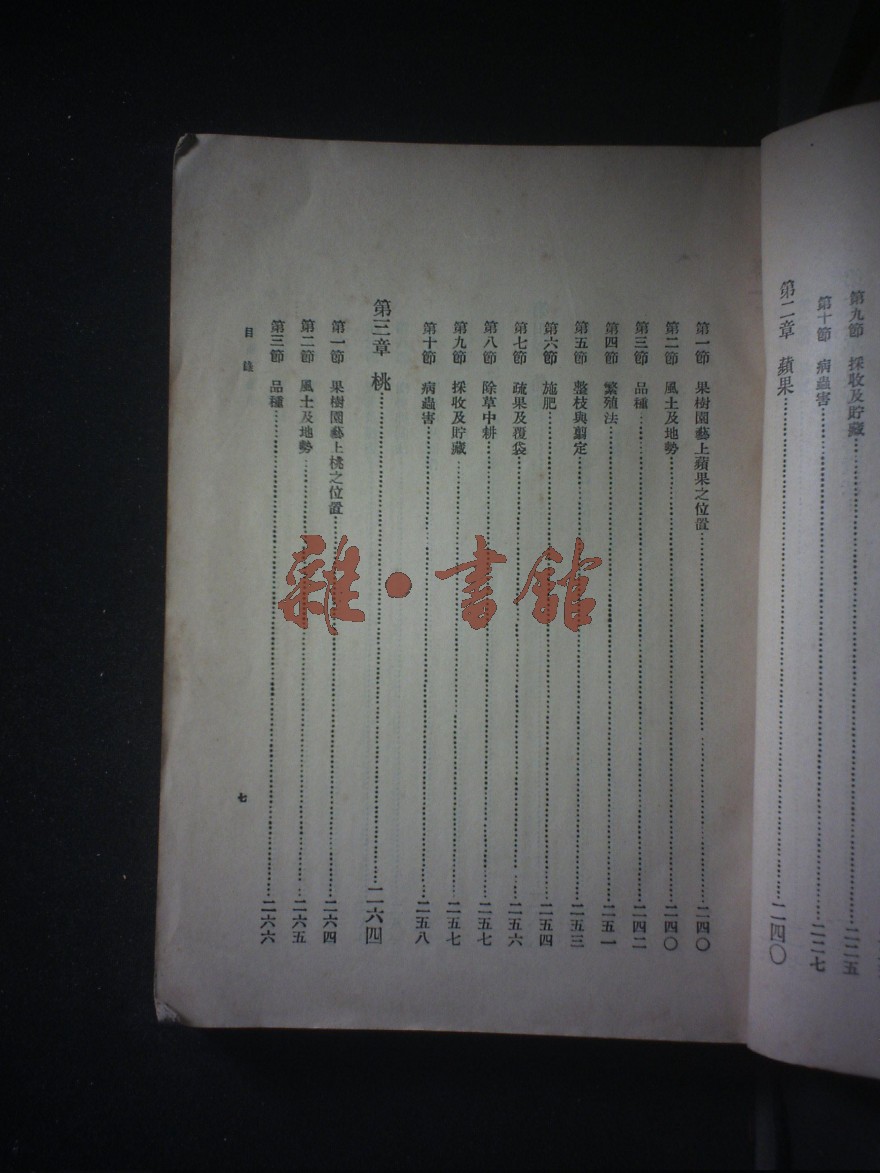 第九節 採收及貯藏……二二五
第十節 病蟲害……二二七
第二章 蘋果……二四〇
第一節 果樹園藝上蘋果之位置……二四〇
第二節 風土及地勢……二四〇
第三節 品種……二四二
第四節 繁殖法……二五一
第五節 整枝與翦定……二五三
第六節 施肥……二五四
第七節 疏果及覆袋……二五六
第八節 除草中耕……二五七
第九節 採收及貯藏……二五七
第十節 病蟲害……二五八
第三章 桃……二六四
第一節 果樹園藝上桃之位置……二六四
第二節 風土及地勢……二六五
第三節 品種……二六六
目錄
七
雜·書館